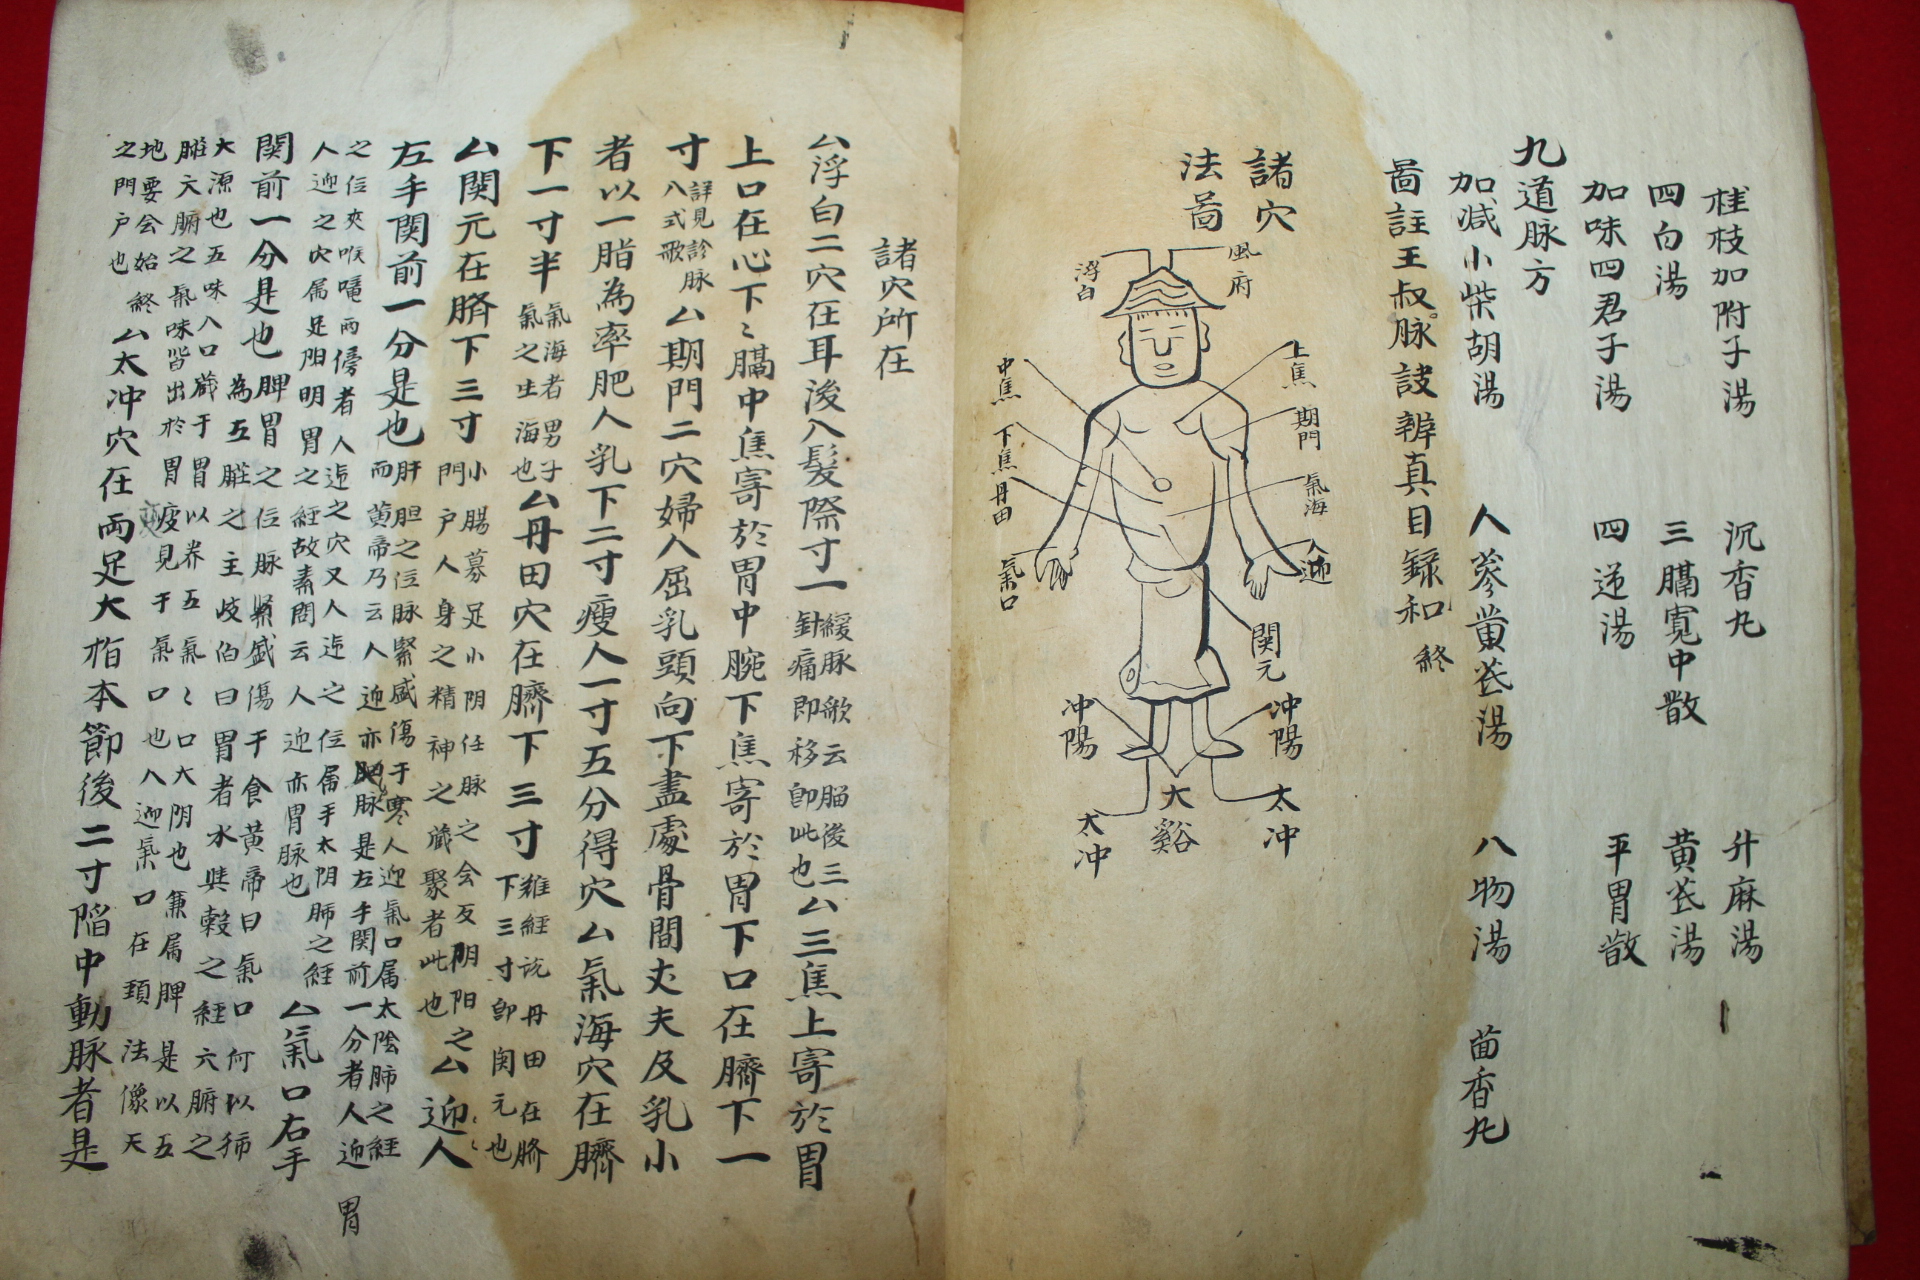 桂枝加附子湯 沉香丸 升麻湯
四白湯 三膈寬中散 黄茋湯
加味四君子湯 四逆湯 平胃散
九道脉方
加减小柴胡湯 人參黄茋湯 八物湯 茴香丸
啚註王叔脉訣辨真目録和 終
諸穴
法啚
風府
浮白
上焦
中焦
期門
下焦
丹田
氣海
人迎
氣口
関元
冲陽
冲陽
太冲
大谿
太冲
諸穴所在
厶浮白二穴在耳後入髮際寸一 緩脉歌云腦後三針痛即移卽此也 厶三焦上寄於胃
上口在心下〻膈中焦寄於胃中腕下焦寄於胃下口在臍下一
寸 詳見診脉八式歌 厶期門二穴婦人屈乳頭向下盡處骨間丈夫及乳小
者以一脂為率肥人乳下二寸瘦人一寸五分得穴厶氣海穴在臍
下一寸半 氣海者男子氣之生海也 厶丹田穴在臍下三寸 難經說丹田在臍下三寸卽関元也
厶関元在臍下三寸 小腸募足小阴任脉之会反阴阳之門戶人身之精神之藏聚者此也 厶迎人
左手関前一分是也 肝胆之位脉緊盛傷于寒人迎氣口属太陰肺之経而黄帝乃云人迎亦 脉是左手関前一分者人迎胃
之位夾喉嚨兩傍者人迆之穴又人迆之位属手太阴肺之経
人迎之穴属足阳明胃之経故素問云人迎亦胃脉也 厶氣口右手
関前一分是也 脾胃之位脉緊盛傷于食黄帝曰氣口何以 為五臟之主岐伯曰胃者水與穀之経六腑之
大源也五味入口藏于胃以养五氣〻口大阴也兼属脾是以五
臟六腑之氣味皆出於胃 見于氣口也人迎氣口在頚法像天
地要会始終
之門戶也 厶太冲穴在兩足大栺本節後二寸陷中動脉者是